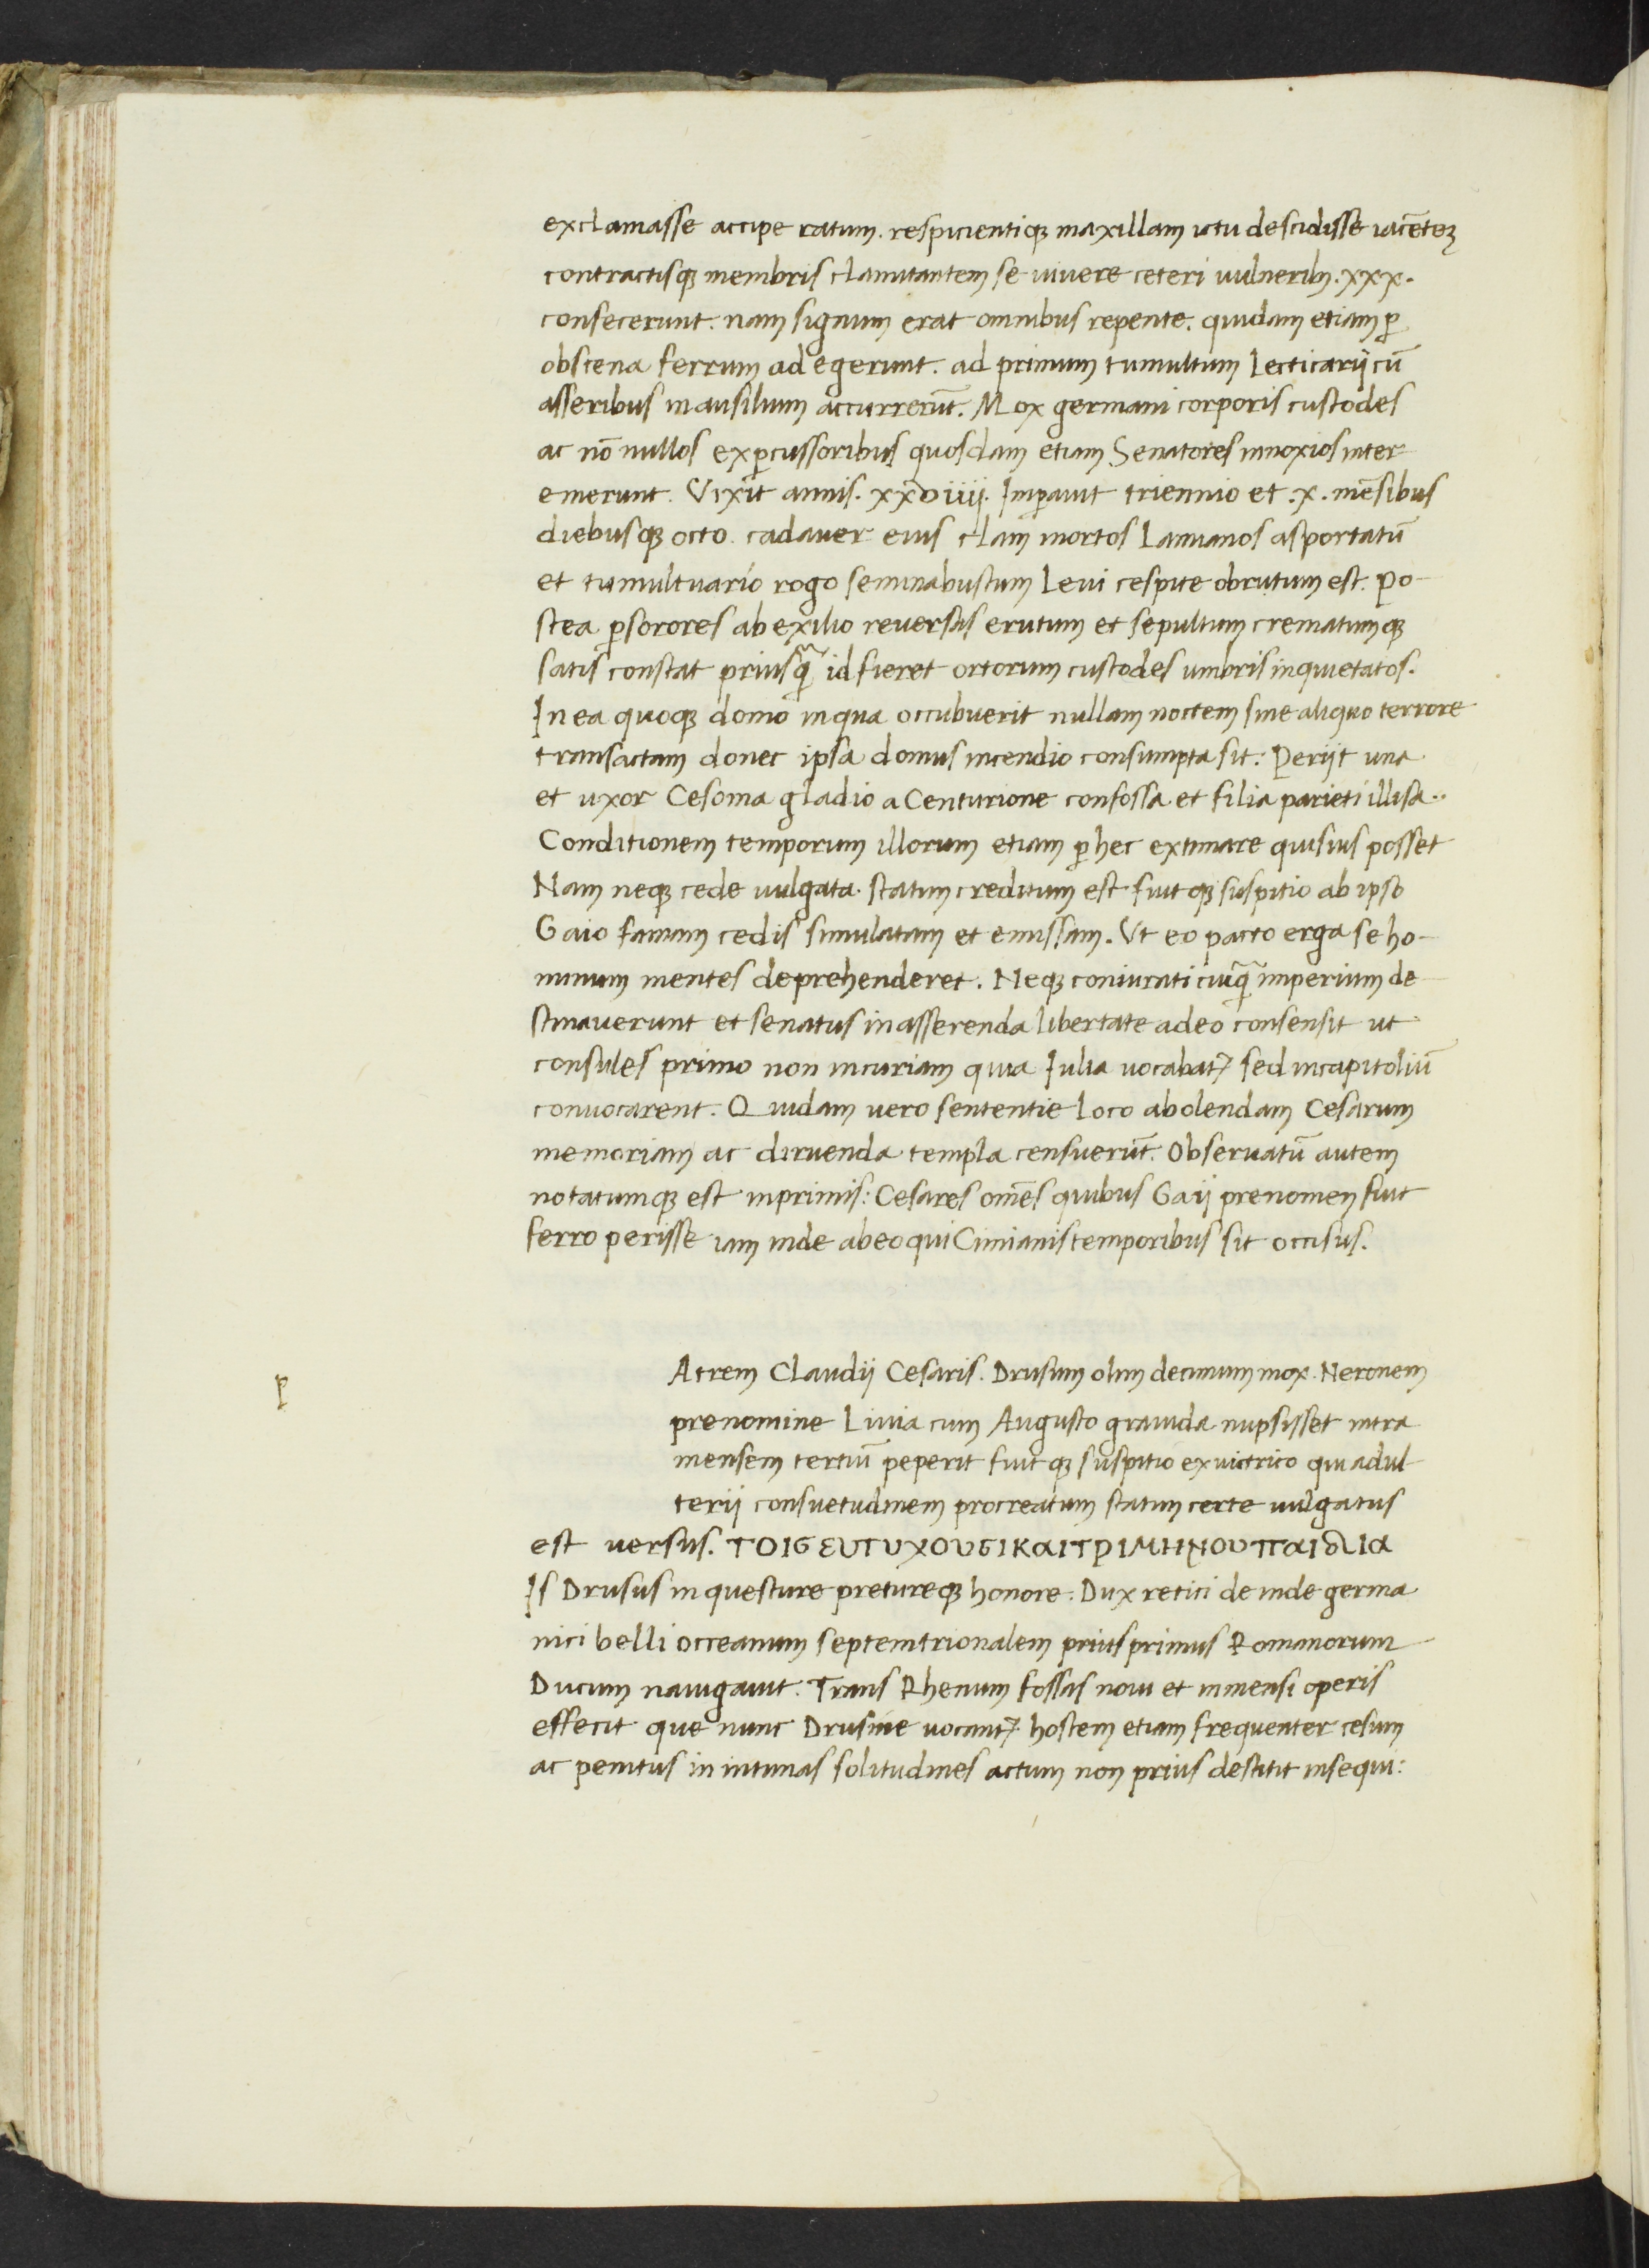 exclamasse accipe ratum. respicientiqꝫ maxillam ictu descidisse iacẽteꝫ
contractisqꝫ membris clamitantem se uiuere ceteri uulneribꝫ. xxx.
confecerunt. nam signum erat omnibus repente. quidam etiam ꝑ
obscena ferrum adegerunt. ad primum tumultum lecticarij cũ
asseribus in ausilium accurrerũt. Mox germani corporis custodes
ac nõ nullos ex ꝑcussoribus quosdam etiam Senatores innoxios inter
emerunt. Vixit annis. xxviiij. Imꝑauit triennio et .x. mẽsibus
diebusqꝫ octo. cadauer eius clam in ortos lamianos asportatũ
et tumultuario rogo semiabustum leui cespite obrutum est. Po-
stea ꝑ sorores ab exilio reuersas erutum et sepultum crematumqꝫ
satis constat priusq̃ id fieret ortorum custodes umbris inquietatos.
In ea quoqꝫ domo in qua occubuerit nullam noctem sine aliquo terrore
transactam donec ipsa domus incendio consumpta sit: Perijt una
et uxor Cesonia gladio a Centurione confossa et filia parieti illisa..
Conditionem temporum illorum etiam ꝑ hec extimare quisius posset
Nam neqꝫ cede uulgata statim creditum est fuitqꝫ suspitio ab ipso
Gaio famam cedis simulatam et emissam. Vt eo pacto erga se ho-
minum mentes deprehenderet. Neqꝫ coniurati cuiq̃ imperium de
stinauerunt et senatus in asserenda libertate adeo consensit ut
consules primo non in curiam quia Iulia uocabatꝛ sed in capitoliũ
conuocarent. Quidam uero sententie loco abolendam Cesarum
memoriam ac diruenda templa censuerũt. Obseruatũ autem
notatumqꝫ est inprimis: Cesares om̃es quibus Gaij prenomen fuit
ferro perisse iam inde ab eo qui Cinnanis temporibus sit occisus.
p
Atrem Claudij Cesaris. Drusum olim decimum mox Neronem
prenomine Liuia cum Augusto grauida nupsisset intra
mensem tertiũ peperit fuitqꝫ suspitio ex uictrico qui adul
terij consuetudinem procreatum statim certe uulgatus
est uersus. ΤΟΙϹ ΕΥΤΥΧΟΥϹΙ ΚΑΙ ΤΡΙΜΗΝΟΥ ΠΑΙΔΙΑ
Is Drusus in questure pretureqꝫ honore. Dux retici deinde germa
nici belli occeanum septemtrionalem prius primus Romanorum
Ducum nauigauit. Trans Rhenum fossas noui et inmensi operis
effecit que nunc Drusine uocantꝛ hostem etiam frequenter cesum
ac penitus in intimas solitudines actum non prius destitit insequi: